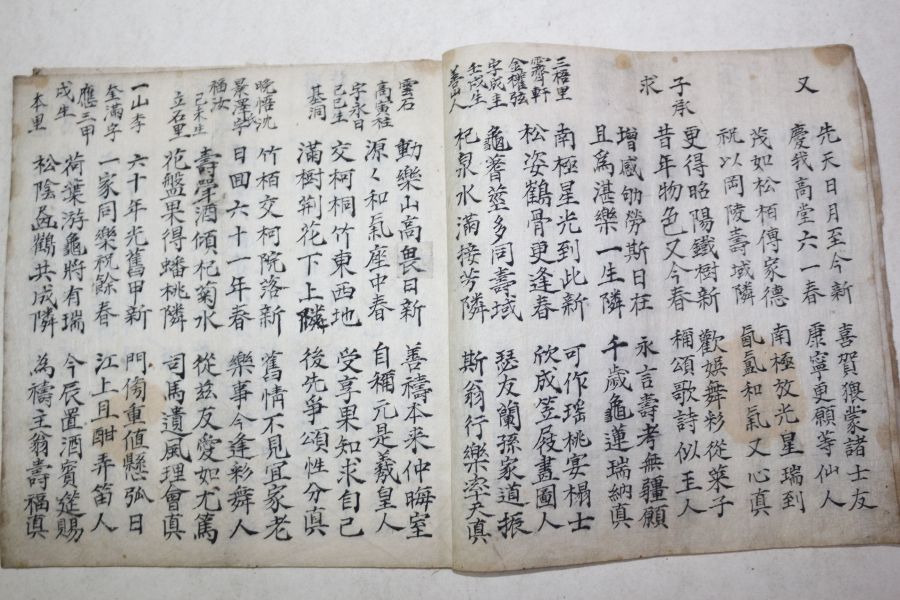 又
先天日月至今新　喜賀猥蒙諸士友
慶我高堂六一春　康寧更願等仙人
茂如松栢傳家德　南極放光星瑞到
祝以岡陵壽域隣　氤氳和氣又心真
子承
求
更得昭陽鐵樹新　歡娛舞彩從萊子
昔年物色又今春　稱頌歌詩似主人
增感劬勞斯日在　永言壽考無疆願
且爲湛樂一生隣　千歲龜蓮瑞納真
三梧里
霽軒
金權弦
字成圭
壬戌生
善山人
南極星光到此新　可作瑤桃宴榻士
松姿鶴骨更逢春　欣成笠屐畫圖人
龜蓍莚多同壽域　瑟友蘭孫家道振
杞泉水滿接芳隣　斯翁行樂率天真
雲石
高寅柱
字永日
己巳生
基洞
動樂山高畏日新　善禱本來仲晦室
源々和氣座中春　自稱元是羲皇人
交柯桐竹東西地　受享果知求自己
滿樹荆花下上隣　後先爭頌性分真
晚悟沈
景澤字
福汝
己未生
立石里
竹栢交柯院落新　舊情不見宜家老
日回六十一年春　樂事今逢彩舞人
壽斝酒傾杞菊水　從玆友愛如尤篤
花盤果得蟠桃隣　司馬遺風理會真
一山李
奎滿字
應三甲
戌生
本里
六十年光舊甲新　門傍重値懸弧日
一家同樂祝餘春　江上且酣弄笛人
荷葉游龜將有瑞　今辰置酒賓筵賜
松陰益鶴共成隣　為禱主翁壽福真